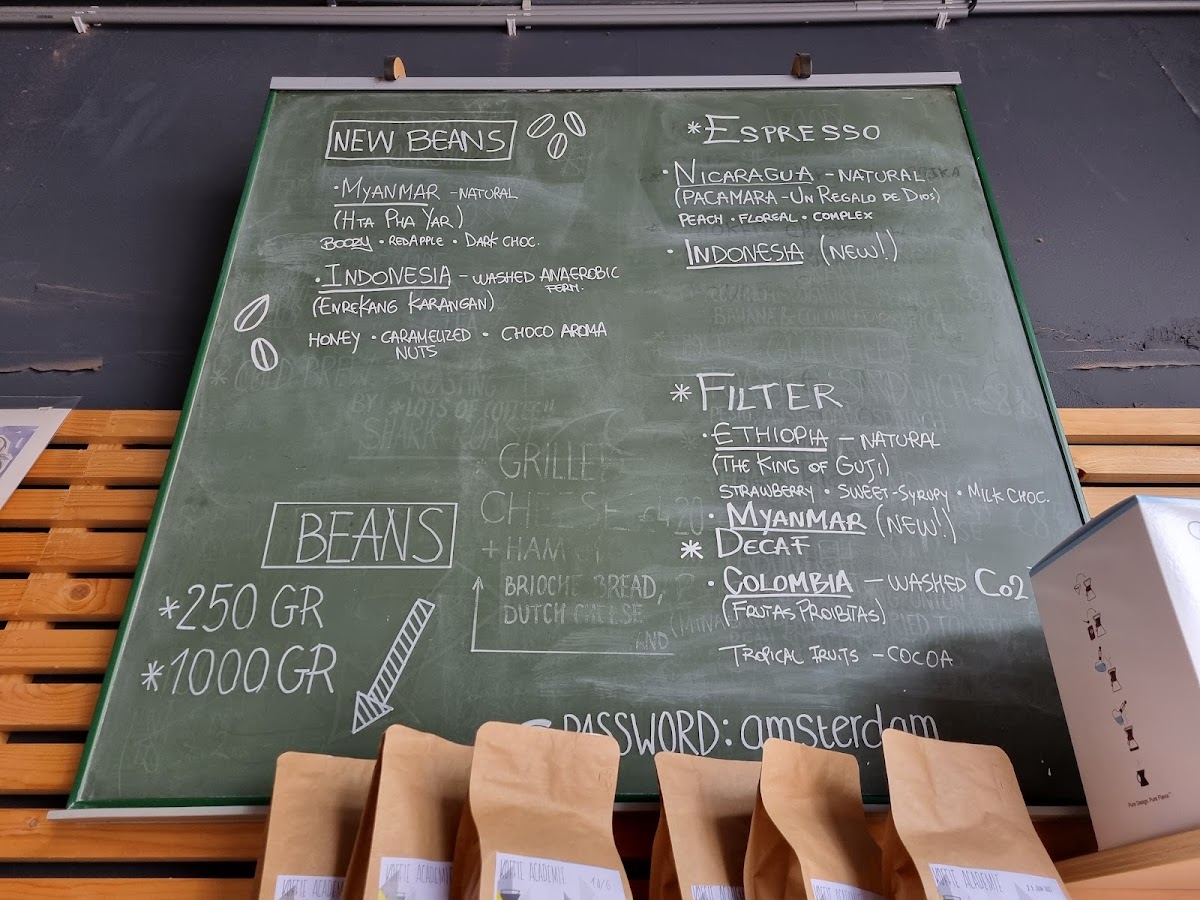 NEW BEANS
• MYANMAR - NATURAL
(HTA PHA YAR)
BOOZY • RED APPLE • DARK CHOC.
• INDONESIA - WASHED ANAEROBIC
FERM.
(ENREKANG KARANGAN)
HONEY • CARAMELIZED • CHOCO AROMA
NUTS
ROASTING
BY "LOTS OF COFFEE"
GRILLE
CHEESE
+ HAM
BRIOCHE BREAD,
DUTCH CHEESE
AND
BEANS
* 250 GR
* 1000 GR
* ESPRESSO
• NICARAGUA - NATURAL
(PACAMARA - UN REGALO DE DIOS)
PEACH • FLOREAL • COMPLEX
• INDONESIA (NEW!)
* FILTER
• ETHIOPIA - NATURAL
(THE KING OF GUJI)
STRAWBERRY • SWEET-SYRUPY • MILK CHOC.
• MYANMAR (NEW!)
* DECAF
• COLOMBIA - WASHED CO2
(FRUTAS PROIBITAS)
TROPICAL FRUITS - COCOA
PASSWORD: amsterdam
KOFFIE ACADEMIE
KOFFIE ACADEMIE
KOFFIE ACADEMIE
KOFFIE ACADEMIE
Pure Design. Pure Flavor.™